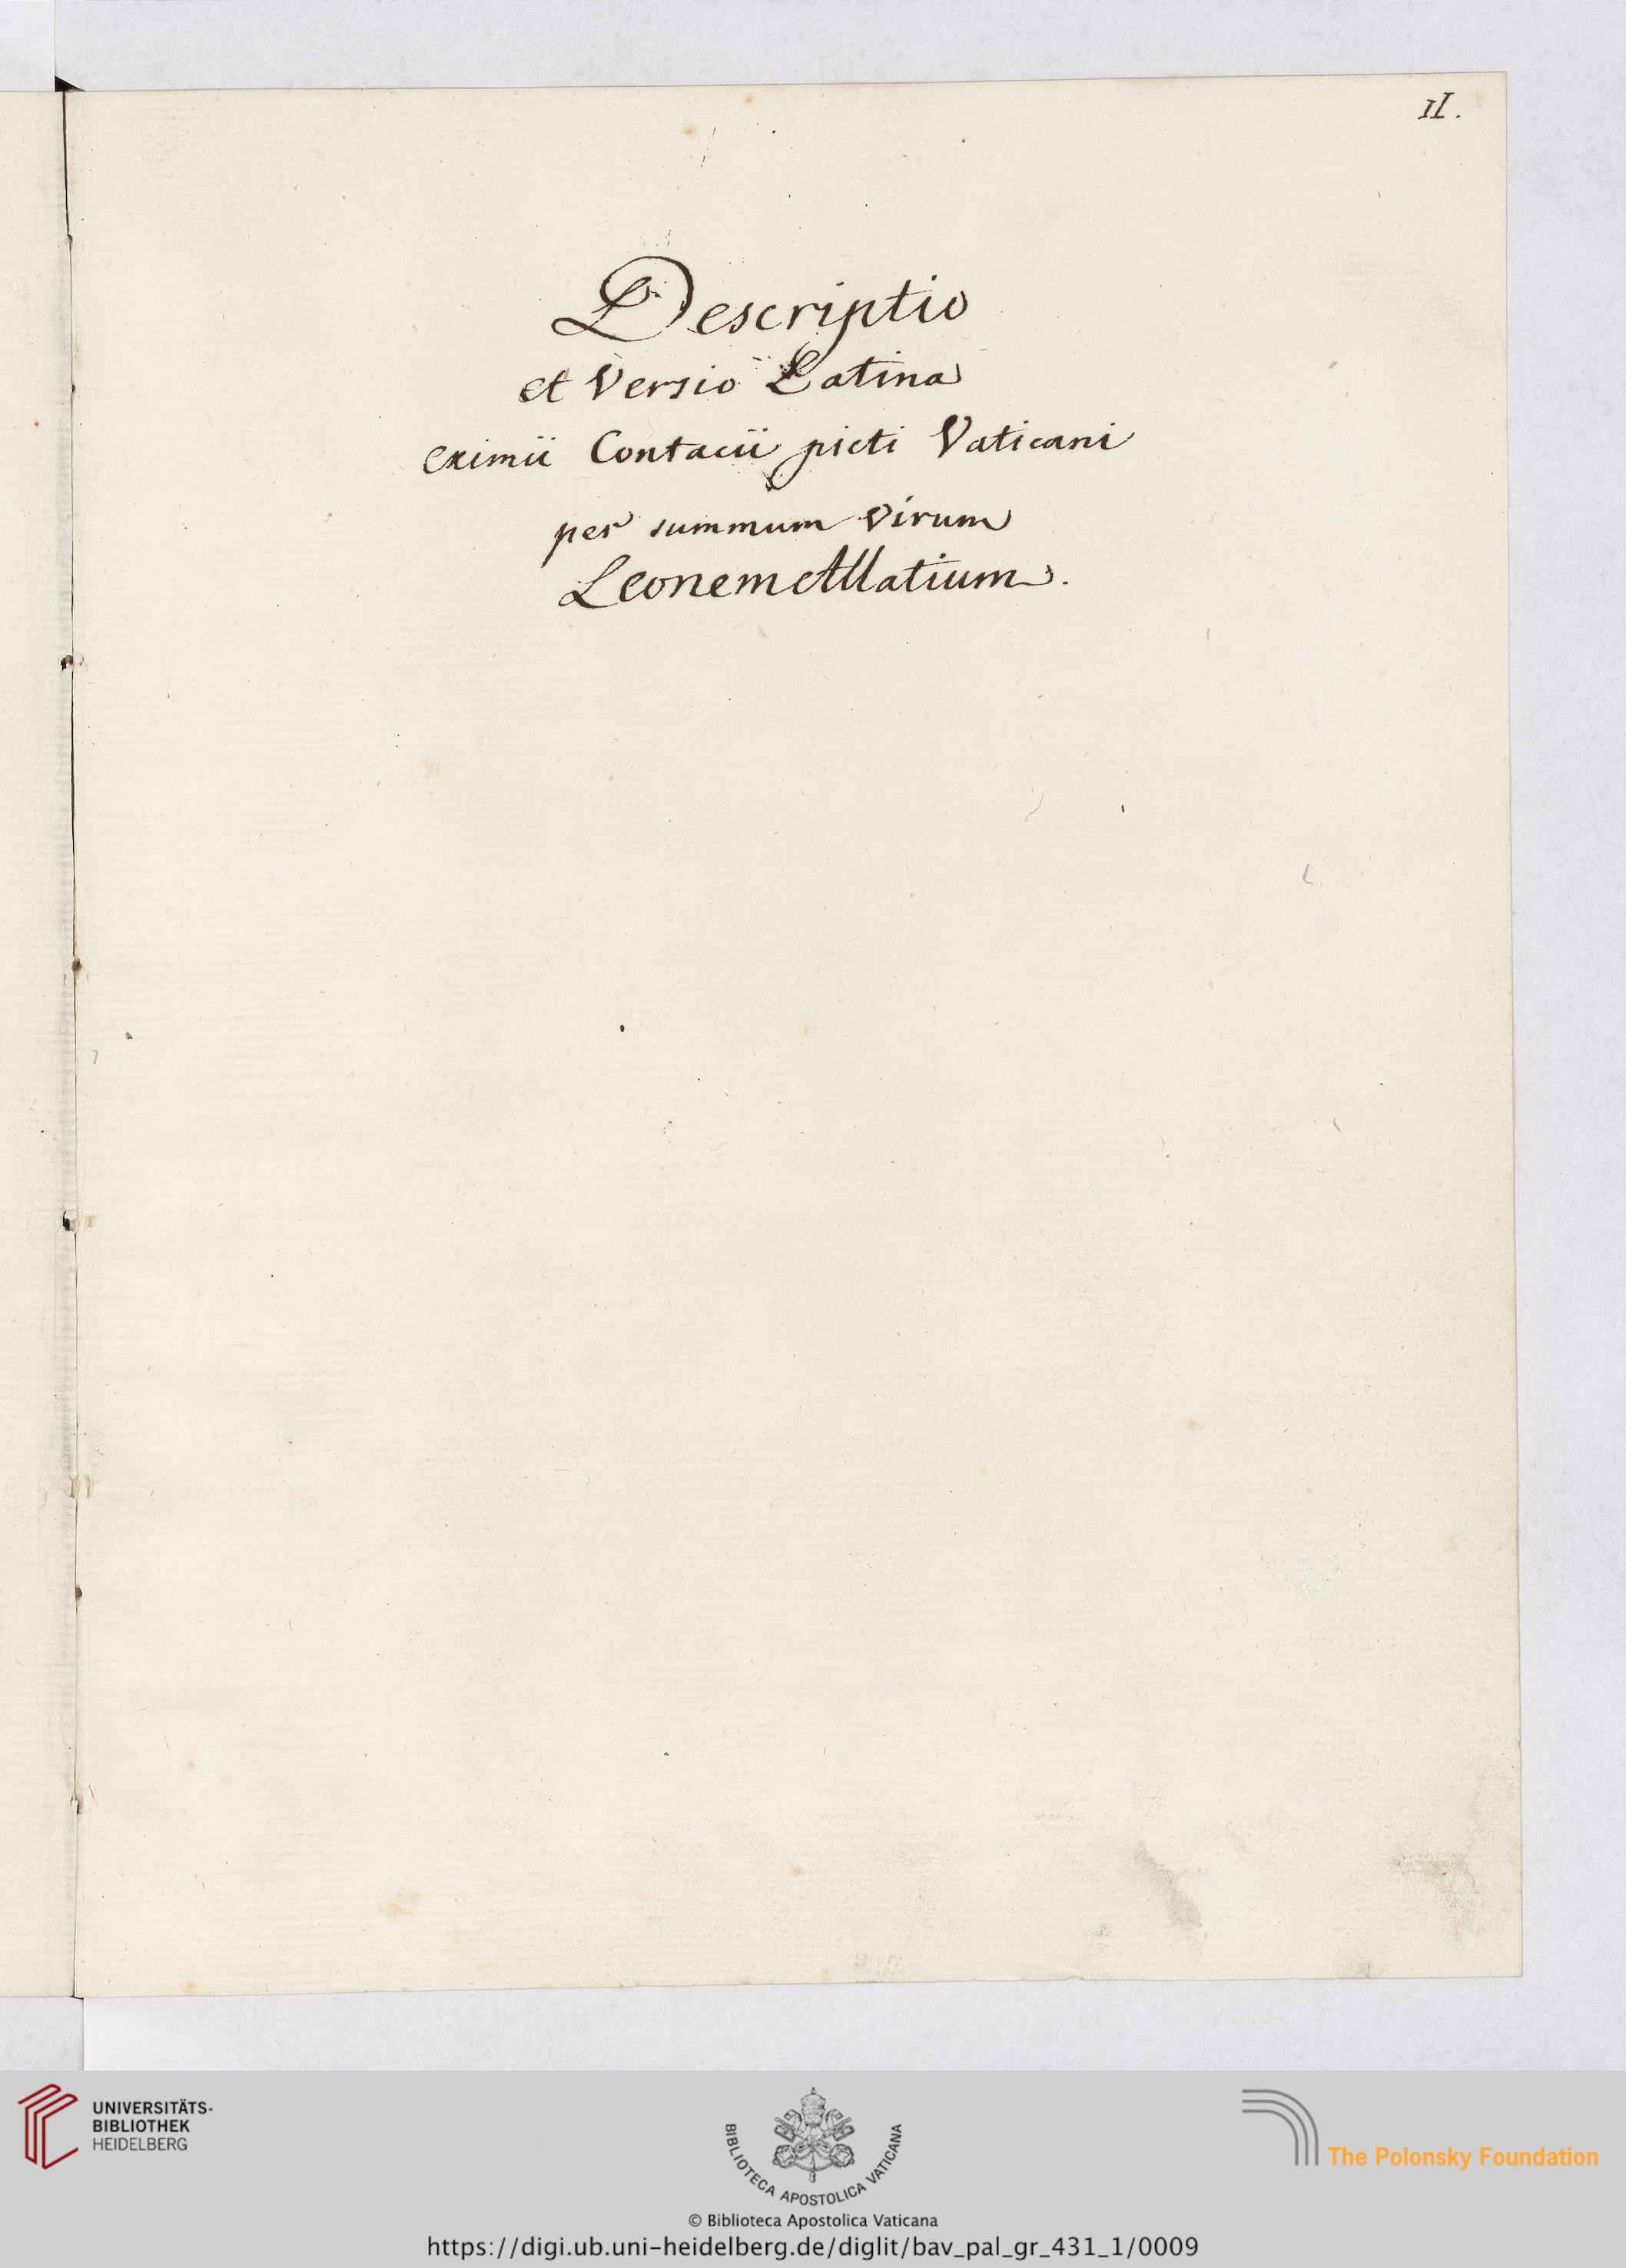 II.
Descriptio
et Versio Latina
eximii Contacii picti Vaticani
per summum Virum
Leonem Allatium.
UNIVERSITÄTS-
BIBLIOTHEK
HEIDELBERG
BIBLIOTECA APOSTOLICA VATICANA
The Polonsky Foundation
© Biblioteca Apostolica Vaticana
https://digi.ub.uni-heidelberg.de/diglit/bav_pal_gr_431_1/0009